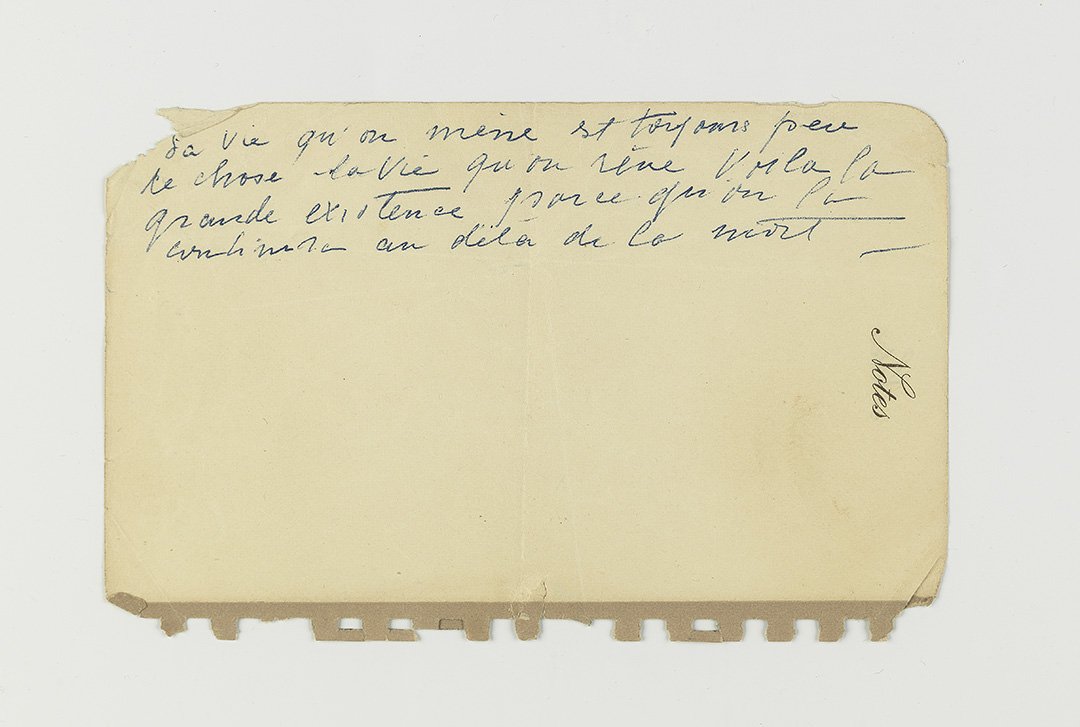 La Vie qu'on mène est toujours peu
de chose la Vie qu'on rêve Voila la
grande existence parce qu'on la
continuera au dela de la mort —
Notes